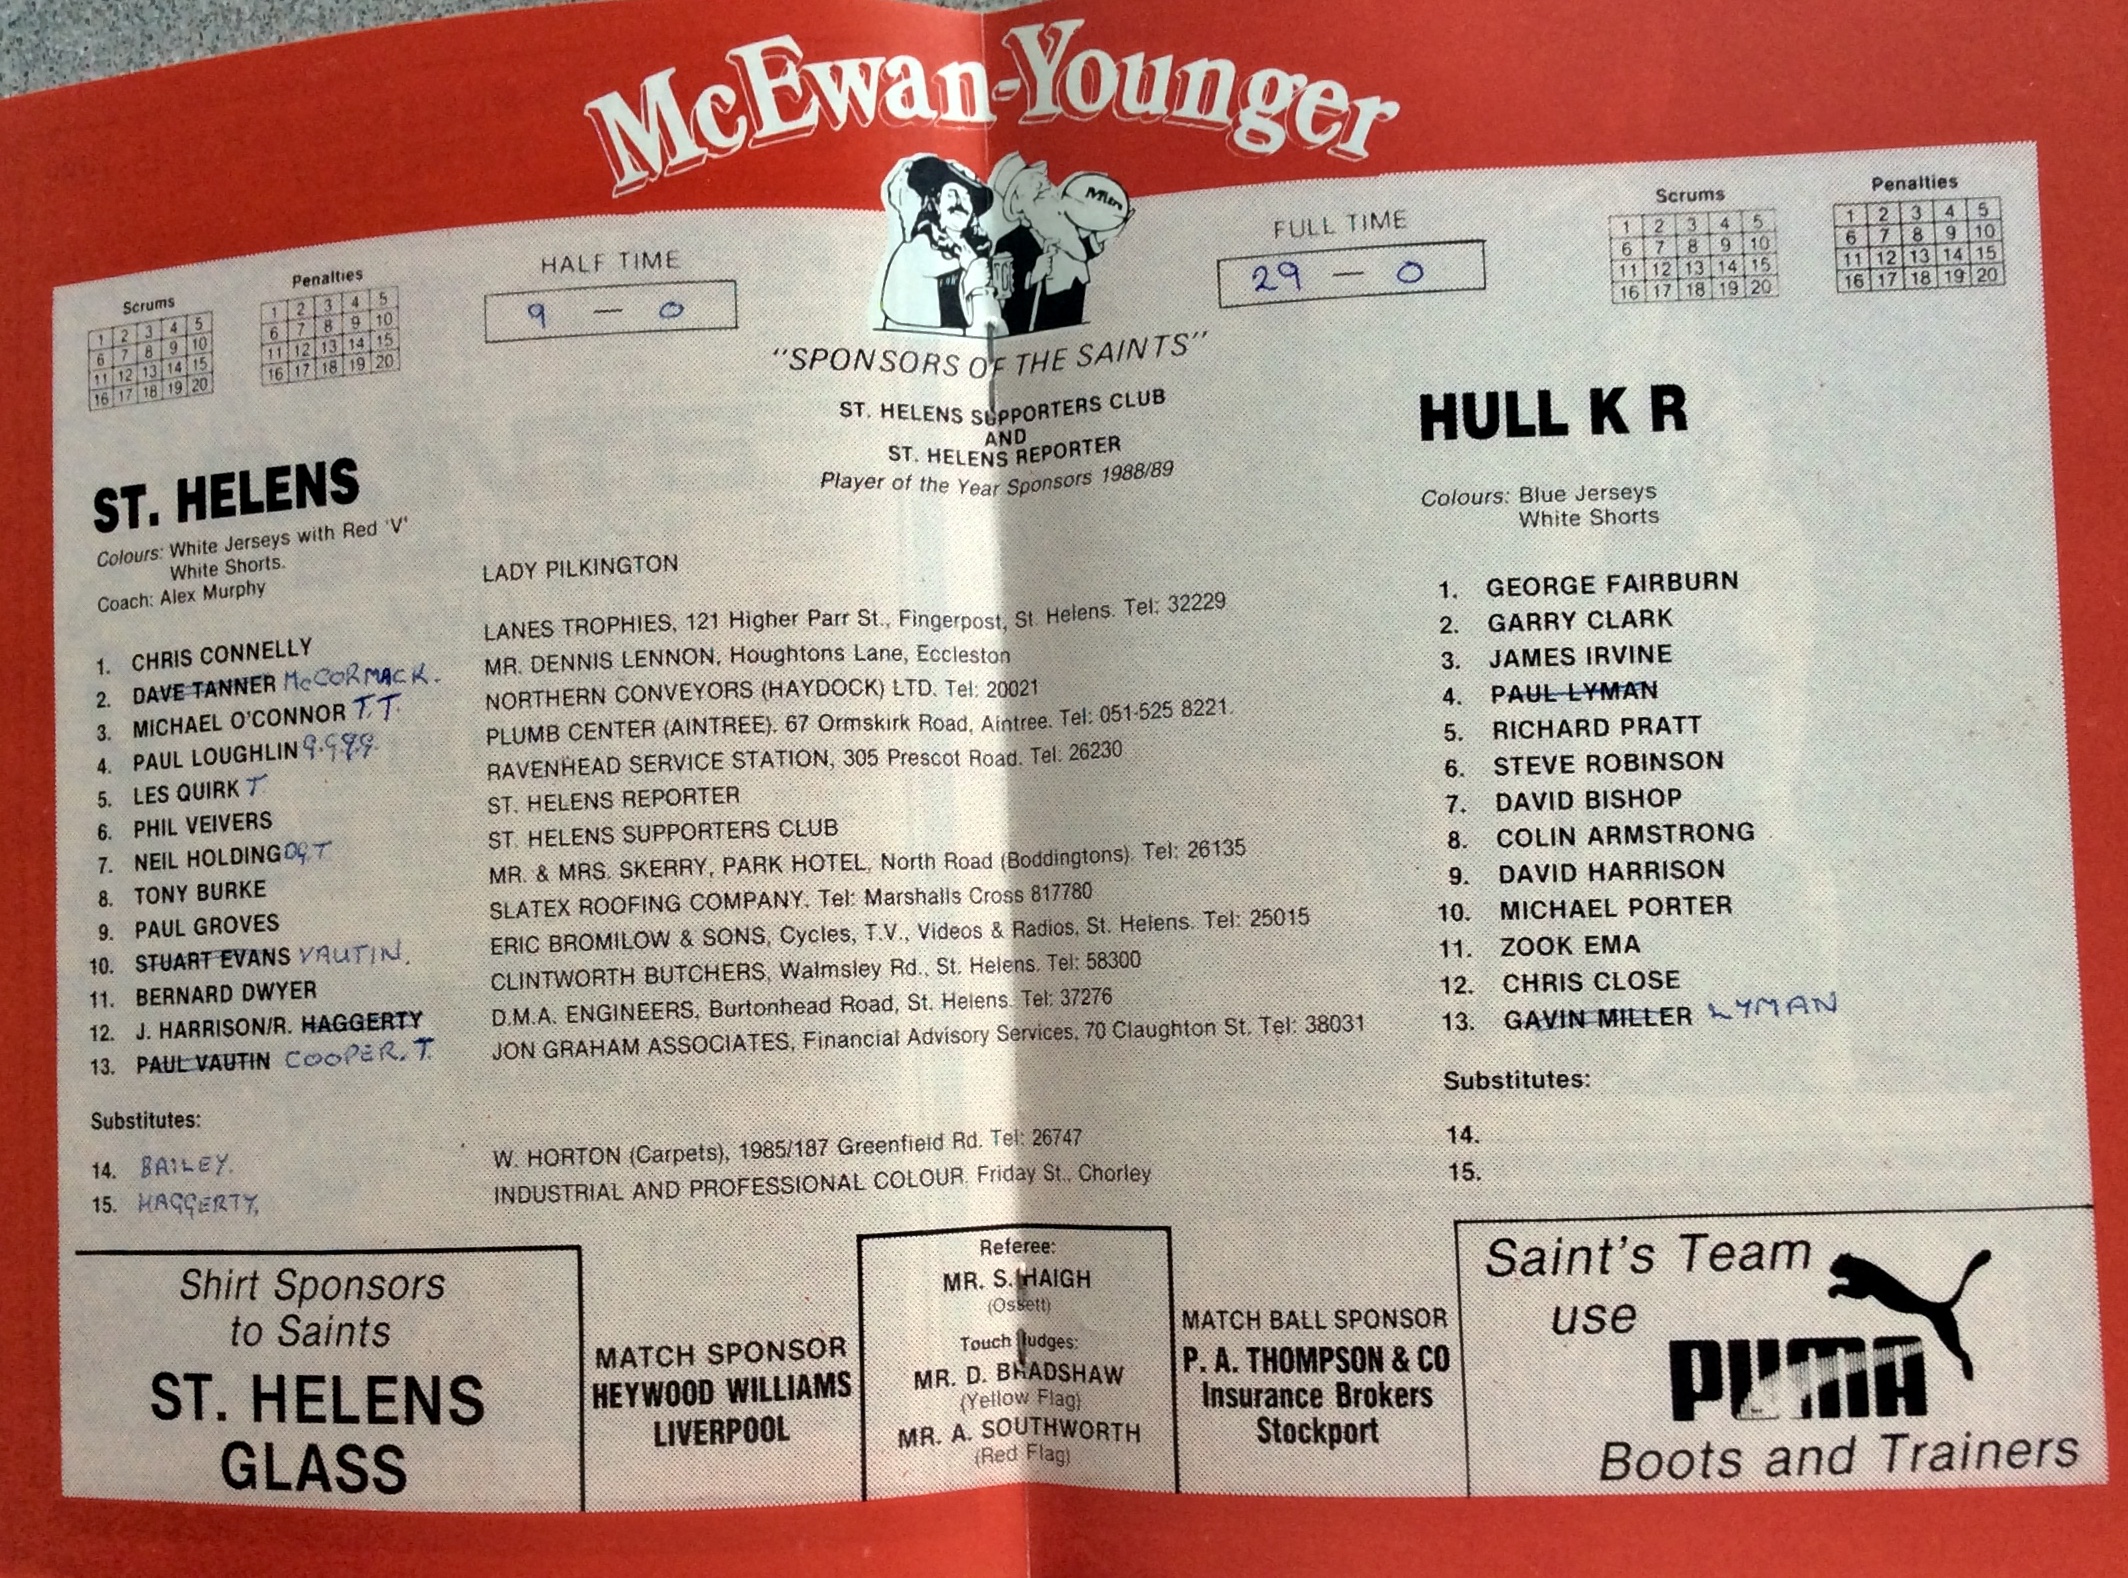 McEwan-Younger
Scrums
1 2 3 4 5
6 7 8 9 10
11 12 13 14 15
16 17 18 19 20
Penalties
1 2 3 4 5
6 7 8 9 10
11 12 13 14 15
16 17 18 19 20
HALF TIME
9 — 0
FULL TIME
29 — 0
Scrums
1 2 3 4 5
6 7 8 9 10
11 12 13 14 15
16 17 18 19 20
Penalties
1 2 3 4 5
6 7 8 9 10
11 12 13 14 15
16 17 18 19 20
"SPONSORS OF THE SAINTS"
ST. HELENS SUPPORTERS CLUB
AND
ST. HELENS REPORTER
Player of the Year Sponsors 1988/89
ST. HELENS
Colours: White Jerseys with Red 'V'
White Shorts.
Coach: Alex Murphy
1. CHRIS CONNELLY
2. DAVE TANNER McCORMACK.
3. MICHAEL O'CONNOR T.T.
4. PAUL LOUGHLIN g.g.g.g.
5. LES QUIRK T
6. PHIL VEIVERS
7. NEIL HOLDING DGT
8. TONY BURKE
9. PAUL GROVES
10. STUART EVANS VAUTIN.
11. BERNARD DWYER
12. J. HARRISON/R. HAGGERTY
13. PAUL VAUTIN COOPER.T.
Substitutes:
14. BAILEY.
15. HAGGERTY,
LADY PILKINGTON
LANES TROPHIES, 121 Higher Parr St., Fingerpost, St. Helens. Tel: 32229
MR. DENNIS LENNON, Houghtons Lane, Eccleston
NORTHERN CONVEYORS (HAYDOCK) LTD. Tel: 20021
PLUMB CENTER (AINTREE). 67 Ormskirk Road, Aintree. Tel: 051-525 8221.
RAVENHEAD SERVICE STATION, 305 Prescot Road. Tel: 26230
ST. HELENS REPORTER
ST. HELENS SUPPORTERS CLUB
MR. & MRS. SKERRY, PARK HOTEL, North Road (Boddingtons). Tel: 26135
SLATEX ROOFING COMPANY. Tel: Marshalls Cross 817780
ERIC BROMILOW & SONS, Cycles, T.V., Videos & Radios, St. Helens. Tel: 25015
CLINTWORTH BUTCHERS, Walmsley Rd., St. Helens. Tel: 58300
D.M.A. ENGINEERS, Burtonhead Road, St. Helens. Tel: 37276
JON GRAHAM ASSOCIATES, Financial Advisory Services, 70 Claughton St. Tel: 38031
W. HORTON (Carpets), 1985/187 Greenfield Rd. Tel: 26747
INDUSTRIAL AND PROFESSIONAL COLOUR, Friday St., Chorley
HULL K R
Colours: Blue Jerseys
White Shorts
1. GEORGE FAIRBURN
2. GARRY CLARK
3. JAMES IRVINE
4. PAUL LYMAN
5. RICHARD PRATT
6. STEVE ROBINSON
7. DAVID BISHOP
8. COLIN ARMSTRONG
9. DAVID HARRISON
10. MICHAEL PORTER
11. ZOOK EMA
12. CHRIS CLOSE
13. GAVIN MILLER LYMAN
Substitutes:
14.
15.
Shirt Sponsors
to Saints
ST. HELENS
GLASS
MATCH SPONSOR
HEYWOOD WILLIAMS
LIVERPOOL
Referee:
MR. S. HAIGH
(Ossett)
Touch Judges:
MR. D. BRADSHAW
(Yellow Flag)
MR. A. SOUTHWORTH
(Red Flag)
MATCH BALL SPONSOR
P. A. THOMPSON & CO
Insurance Brokers
Stockport
Saint's Team
use
PUMA
Boots and Trainers